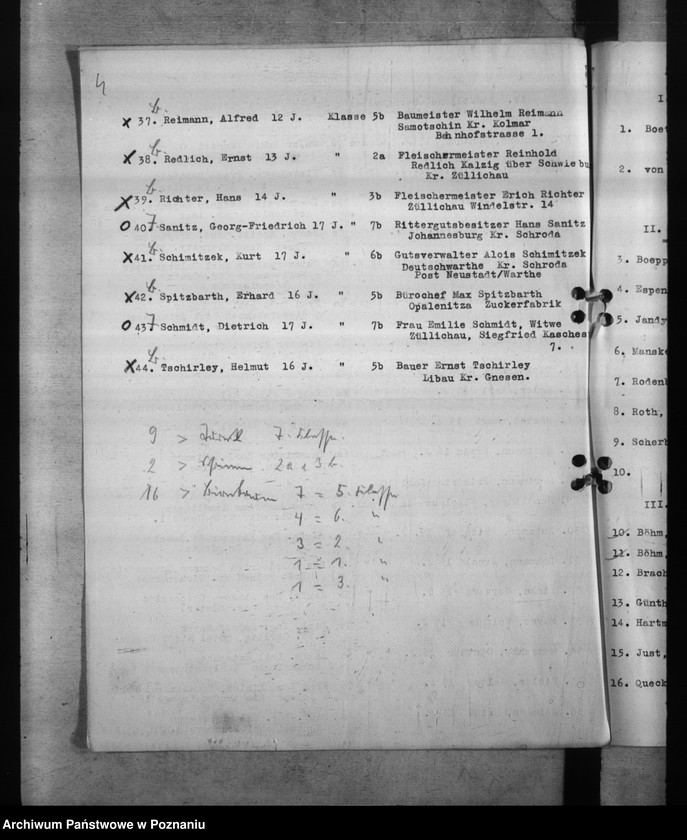 4
X 37. b. Reimann, Alfred 12 J. Klasse 5b Baumeister Wilhelm Reimann
Samotschin Kr. Kolmar
Bahnhofstrasse 1.
X 38. b. Redlich, Ernst 13 J. " 2a Fleischermeister Reinhold
Redlich Kalzig über Schwiebu
Kr. Züllichau
X 39. b. Richter, Hans 14 J. " 3b Fleischermeister Erich Richter
Züllichau Windelstr. 14
O 40. 7 Sanitz, Georg-Friedrich 17 J. " 7b Rittergutsbesitzer Hans Sanitz
Johannesburg Kr. Schroda
X 41. b. Schimitzek, Kurt 17 J. " 6b Gutsverwalter Alois Schimitzek
Deutschwarthe Kr. Schroda
Post Neustadt/Warthe
X 42. b. Spitzbarth, Erhard 16 J. " 5b Bürochef Max Spitzbarth
Opalenitza Zuckerfabrik
O 43. 7 Schmidt, Dietrich 17 J. " 7b Frau Emilie Schmidt, Witwe
Züllichau, Siegfried Kasches
7.
X 44. b. Tschirley, Helmut 16 J. " 5b Bauer Ernst Tschirley
Libau Kr. Gnesen.
9 > 7.
2 > 2a
16 > 7 = 5.
4 = 6. "
3 = 2. "
1 = 1. "
1 = 3. "
I
1. Boet
2. von
II.
3. Boepp
4. Espen
5. Jandy
6. Manske
7. Rodenb
8. Roth,
9. Scherb
10.
III.
10. Böhm,
11. Böhm,
12. Brach
13. Günth
14. Hartm
15. Just,
16. Queck
Archiwum Państwowe w Poznaniu